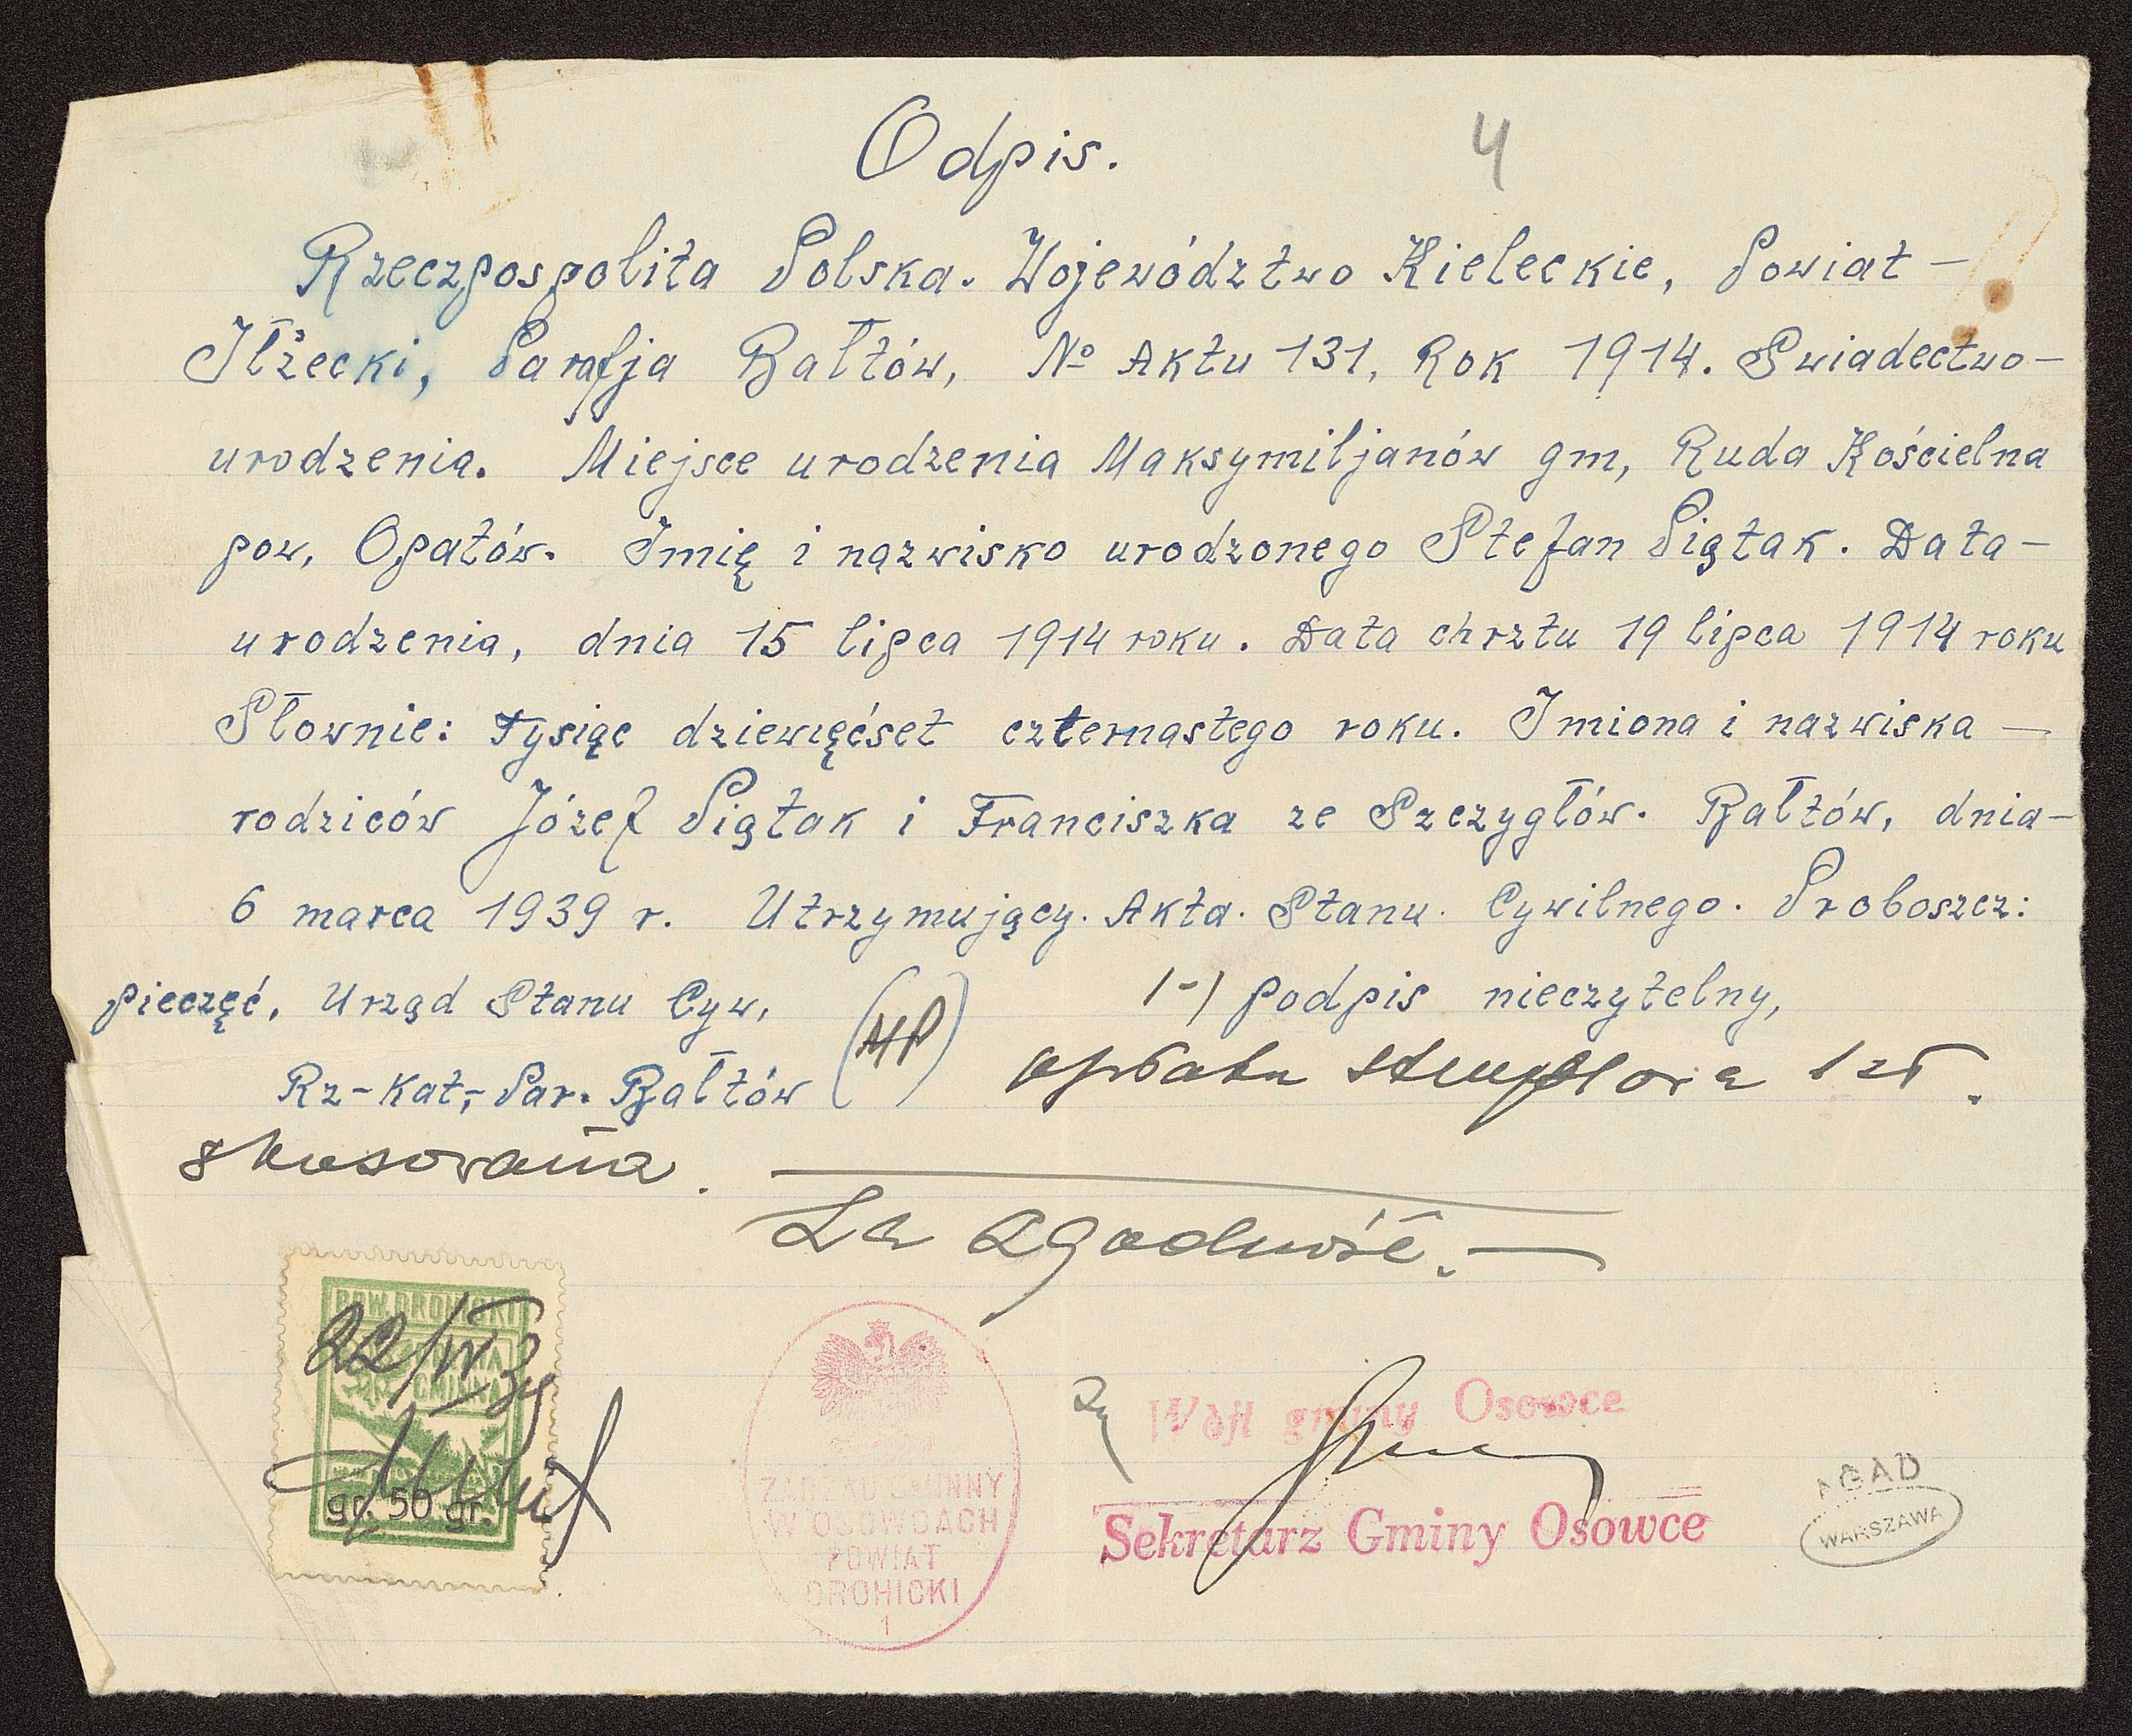 Odpis. 4
Rzeczpospolita Polska. Województwo Kieleckie, Powiat –
Iłżecki, Parafja Bałtów, No Aktu 131, Rok 1914. Swiadectwo –
urodzenia. Miejsce urodzenia Maksymiljanów gm, Ruda Kościelna
pow, Opatów. Imię i nazwisko urodzonego Stefan Piątak. Data –
urodzenia, dnia 15 lipca 1914 roku. Data chrztu 19 lipca 1914 roku
Słownie: Tysiąc dziewięćset czternastego roku. Imiona i nazwiska –
rodziców Józef Piątak i Franciszka ze Szczygłów. Bałtów, dnia –
6 marca 1939 r. Utrzymujący. Akta. Stanu. Cywilnego. Proboszcz:
pieczęć, Urząd Stanu Cyw, (MP) /-/ podpis nieczytelny,
Rz-Kat,- Par. Bałtów opłata stemplowa 1 zł.
skasowana.
Za zgodność. –
POW. DROHICKI
22/IV 39
GMINNA
gr. 50 gr.
ZARZĄD GMINNY
W OSOWCACH
POWIAT
DROHICKI
1
Wójt gminy Osowce
Sekretarz Gminy Osowce
AGAD
WARSZAWA